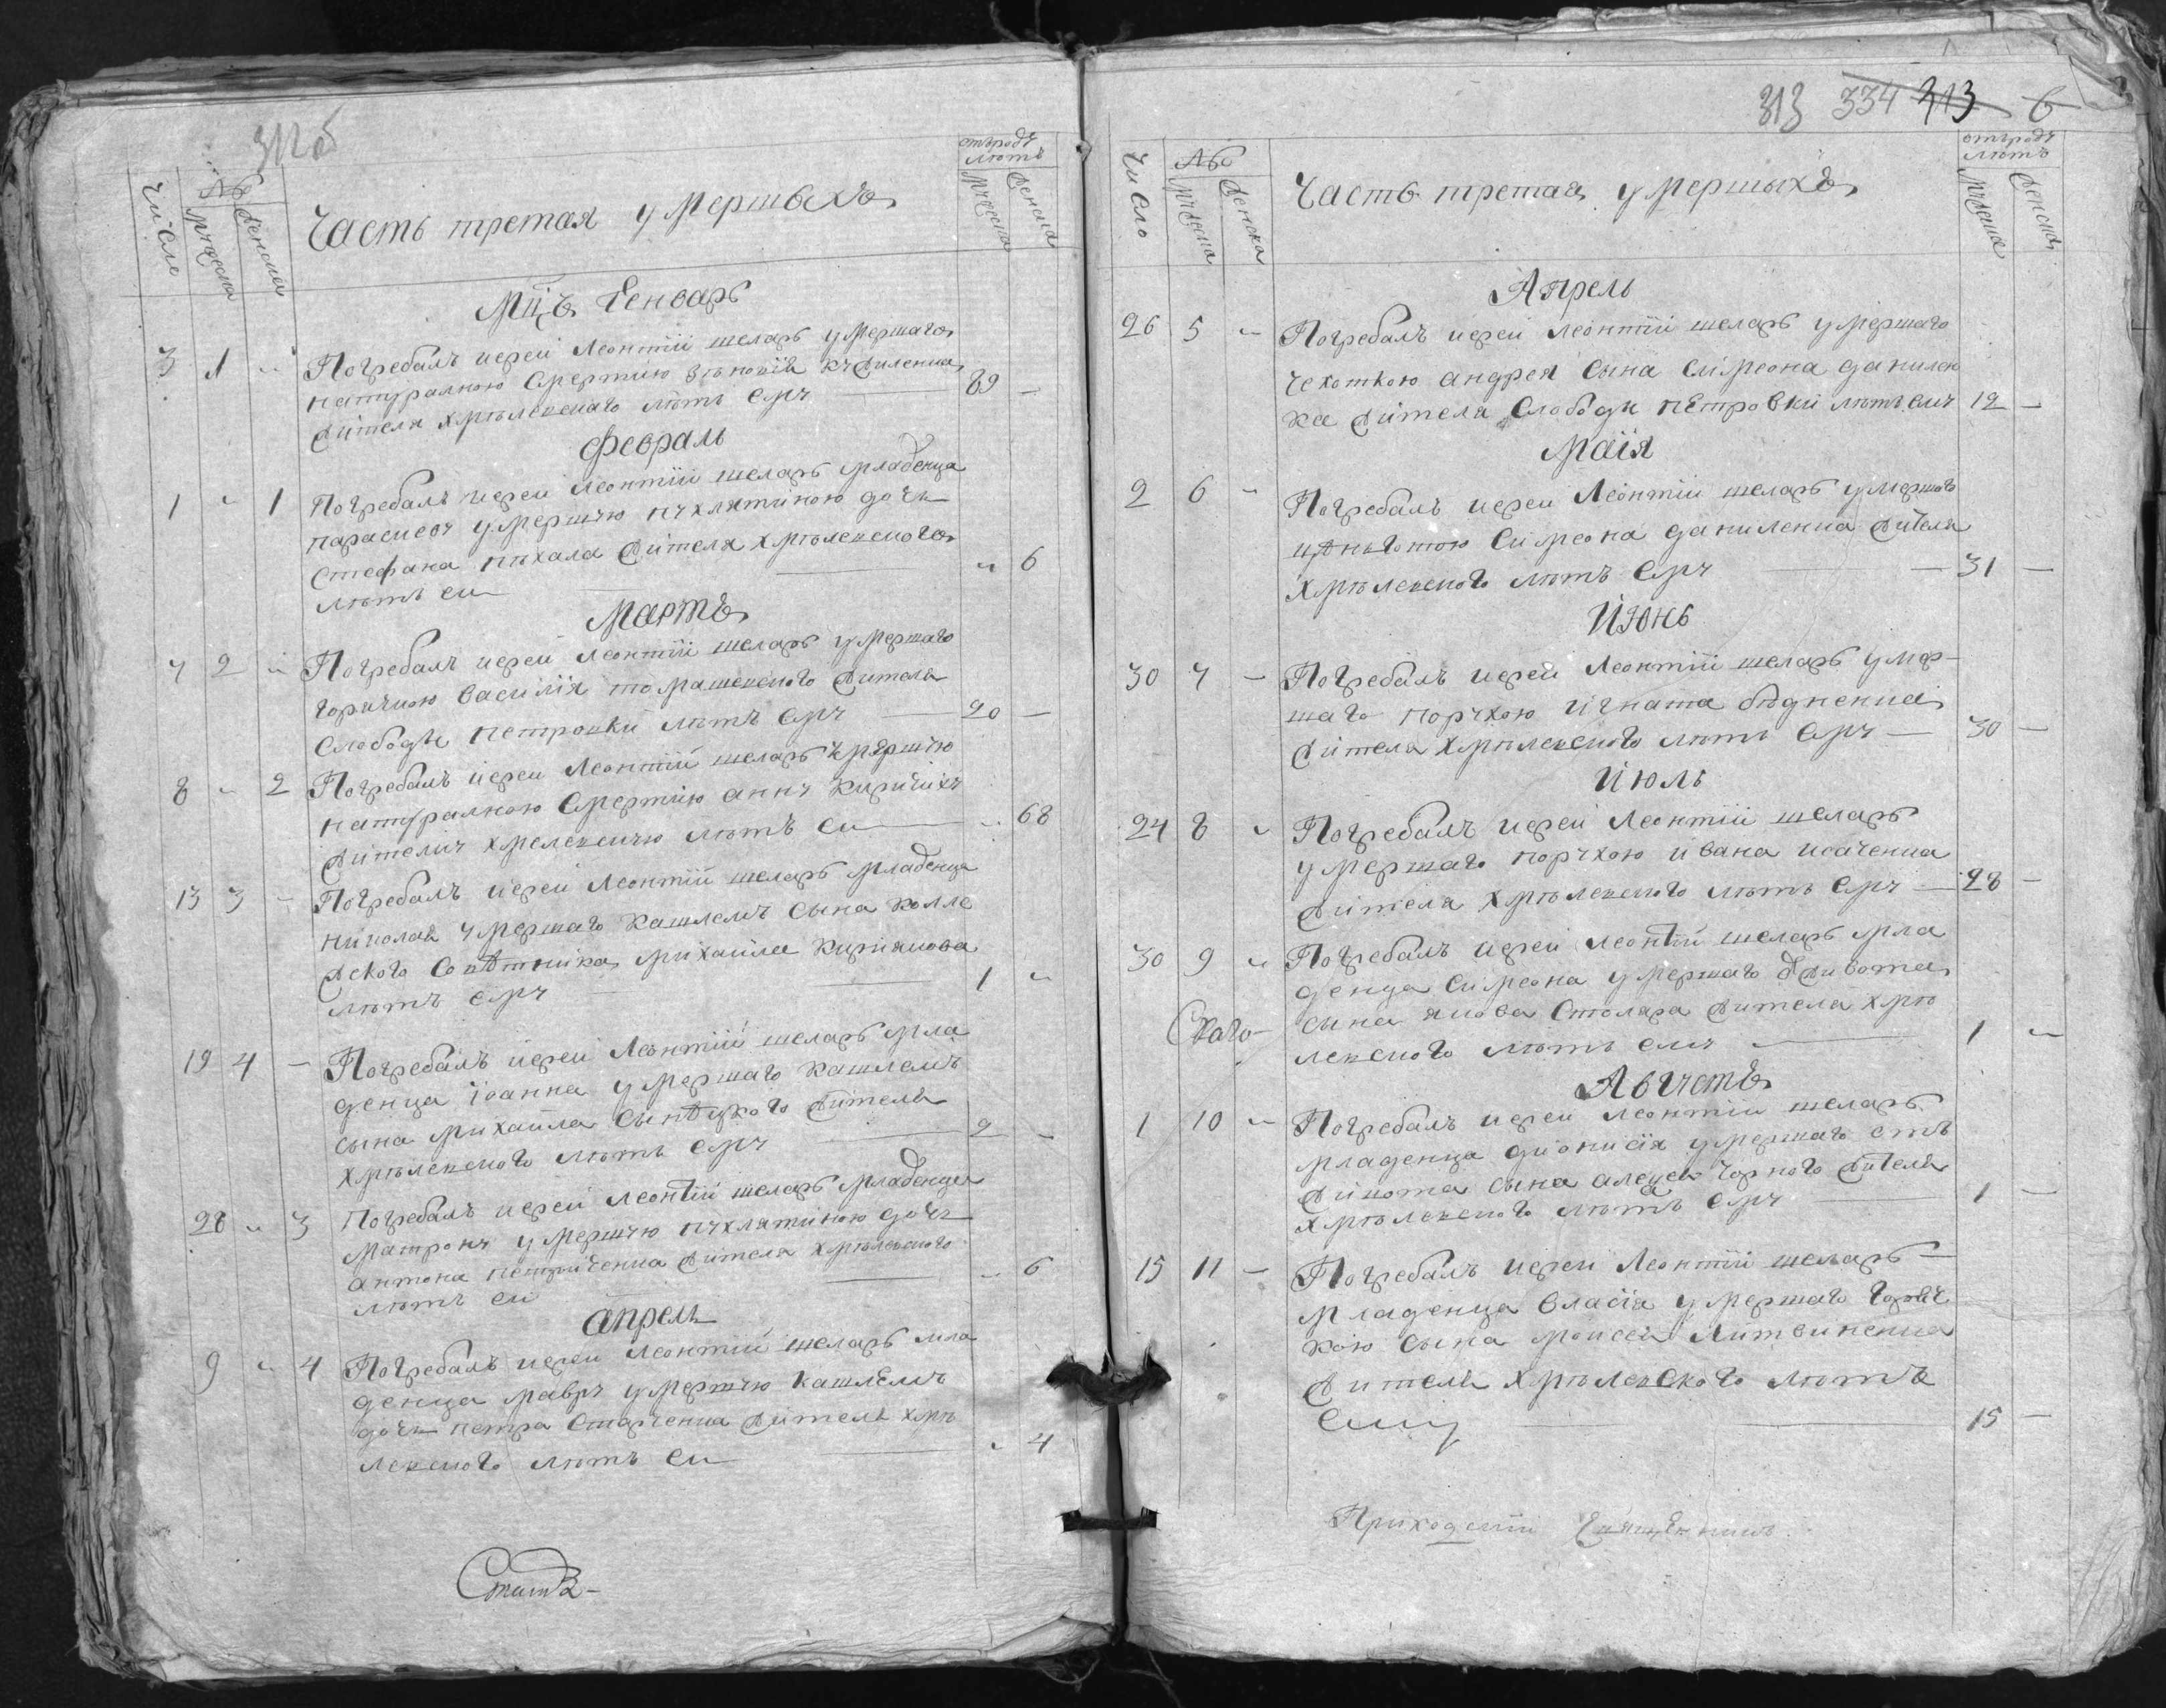 312 об
Число
№
мужеска
женска
Часть третая умершихъ
отъроду
лѣтъ
мужеска
женска
Мцъ Генварь
3 1 „ Погребалъ иерей Леонтїй шеларь умершаго
натуралною смертию зѣновїя
жителя хмѣлевскаго лѣтъ ему 89 —
Февраль
1 „ 1 Погребалъ иерей Леонтїй шеларь младенца
параскеву умершую пухлятиною дочь
Стефана пѣхала жителя хмѣлевского
лѣтъ ей „ 6
Мартъ
7 2 „ Погребалъ иерей Леонтїй шеларь умершаго
горячкою василїя томашевского жителя
Слободы петровки лѣтъ ему 20 —
8 „ 2 Погребалъ иерей Леонтїй шеларь умершую
натуралною смертию анну
жителку хмелевскую лѣтъ ей „ 68
13 3 — Погребалъ иерей Леонтїй шеларь младенца
николая умершаго кашлемъ сына колле
жского совѣтника михаила кириякова
лѣтъ ему 1 „
19 4 — Погребалъ иерей Леонтїй шеларь мла
денца їоанна умершаго кашлемъ
сына михаила жителя
хмѣлевского лѣтъ ему 2 —
28 „ 3 Погребалъ иерей Леонтїй шеларь младенца
матрону умершую пухлятиною дочь
антона петриченка жителя хмѣлевского
лѣтъ ей „ 6
апрель
9 „ 4 Погребалъ иерей Леонтїй шеларь мла
денца мавру умершую кашлемъ
дочь петра старченка жителя хмѣ
левского лѣтъ ей „ 4
313 334 313 6
Число
№
мужеска
женска
Часть третая умершихъ
отъроду
лѣтъ
мужеска
женска
Апрель
26 5 „ Погребалъ иерей Леонтїй шеларь умершаго
чехоткою андрея сына симеона данилен
ка жителя Слободы петровки лѣтъ ему 12 —
Маїя
2 6 „ Погребалъ иерей Леонтїй шеларь умершаго
цынготою симеона даниленка жителя
хмѣлевского лѣтъ ему 31 —
Июнь
30 7 — Погребалъ иерей Леонтїй шеларь умер-
шаго порухою игната бѣдненка
жителя хмѣлевского лѣтъ ему 30 —
Июль
24 8 „ Погребалъ иерей Леонтїй шеларь
умершаго порухою ивана исаченка
жителя хмѣлевского лѣтъ ему 28 —
30 9 „ Погребалъ иерей Леонтїй шеларь мла
денца симеона умершаго живота
сына якова столяра жителя хмѣ
левского лѣтъ ему 1 „
Августъ
1 10 „ Погребалъ иерей Леонтїй шеларь
младенца дионисїя умершаго отъ
живота сына алексея чорного жителя
хмѣлевского лѣтъ ему 1 —
15 11 — Погребалъ иерей Леонтїй шеларь
младенца власїя умершаго горяч
кою сына моисея литвиненка
жителя хмѣлевского лѣтъ
ему 15 —
Приходскїй Священникъ